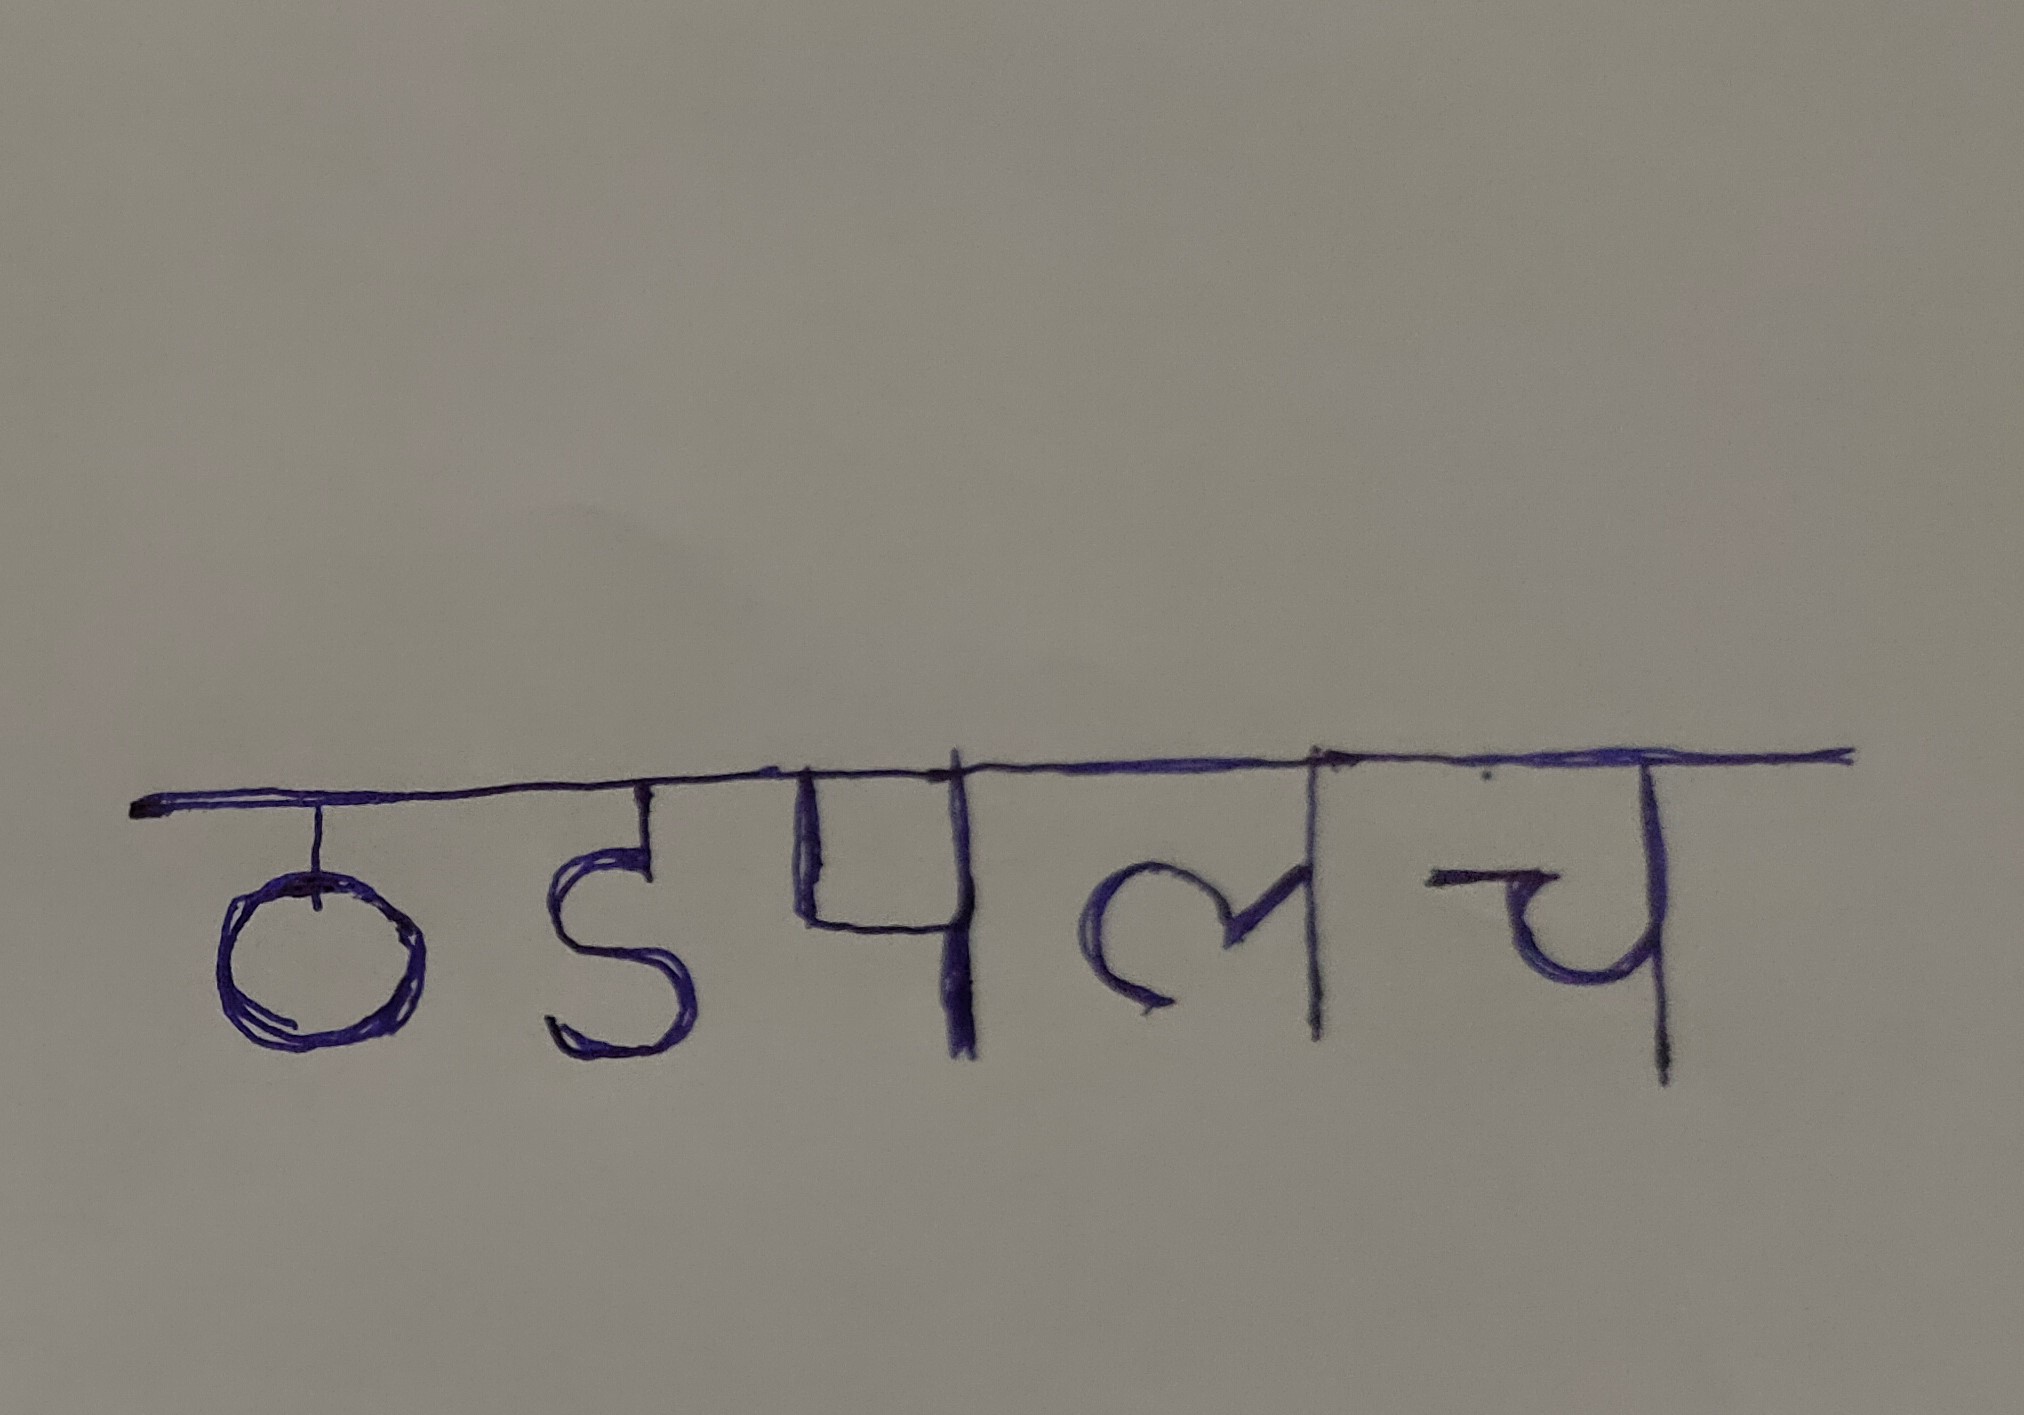 ठडपलच